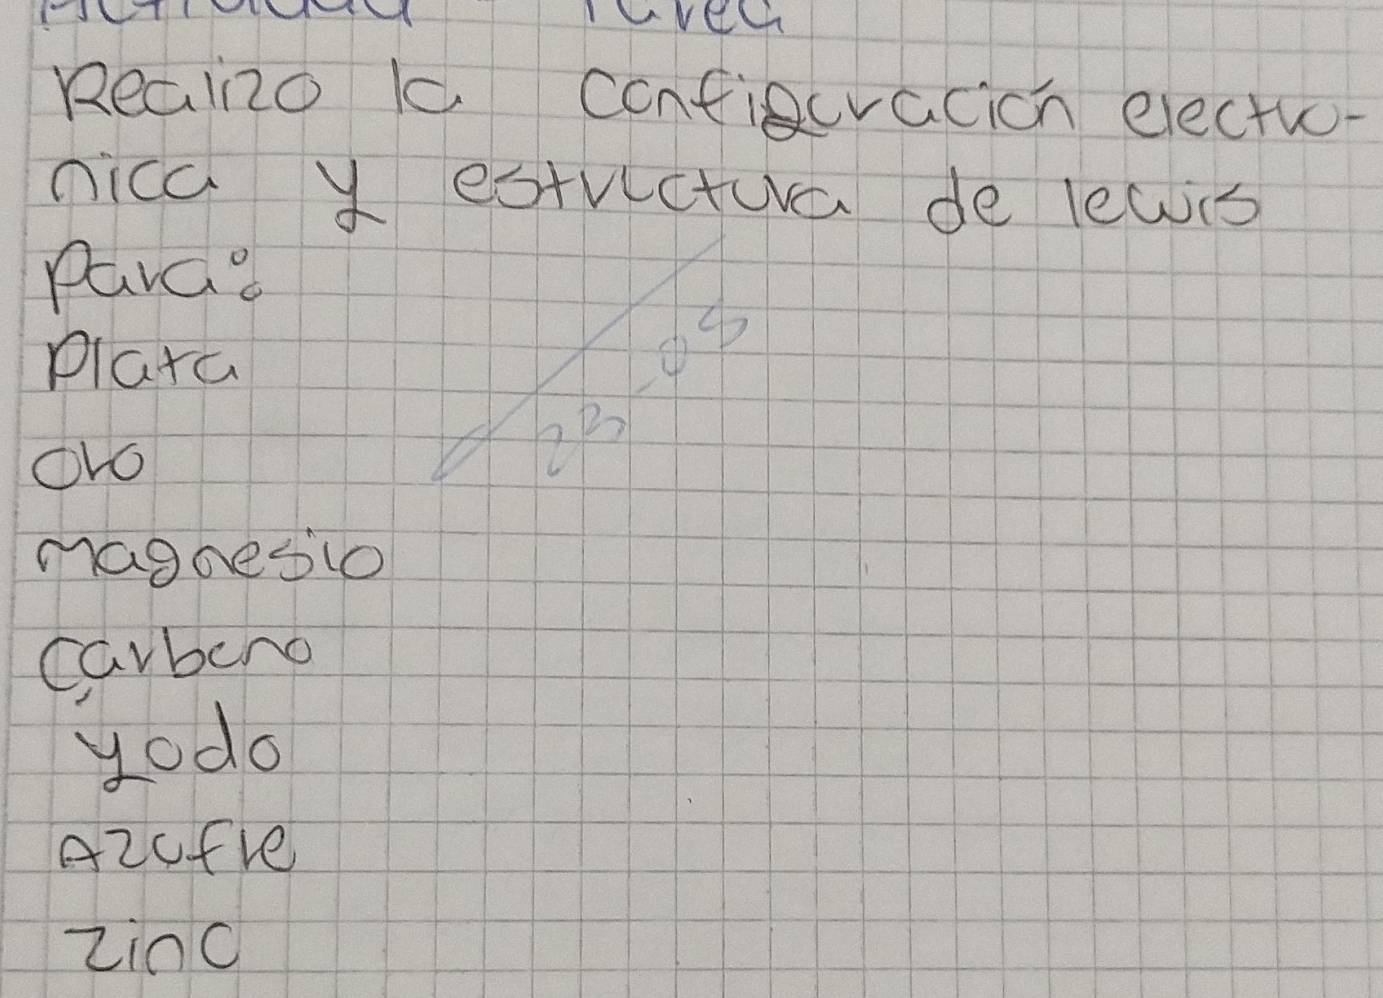 Actividad Tarea
Realizo la configuración electro-
nica y estructura de lewis
Para:
Plata
Oro
magnesio
carbono
yodo
Azufre
zinc